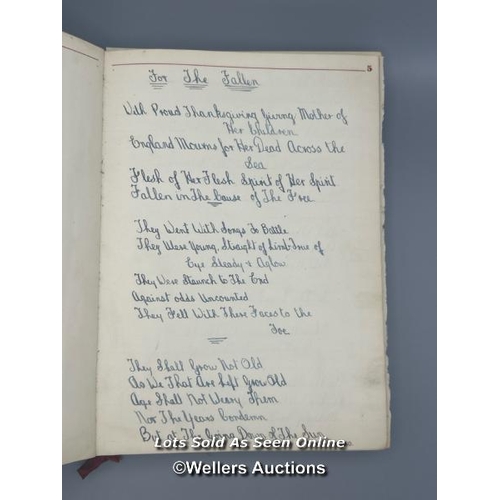 5
For The Fallen
With Proud Thanksgiving Giving Mother of
Her Children
England Mourns for Her Dead Across the
Sea
Flesh of Her Flesh Spirit of Her Spirit
Fallen in The Cause of The Free
They Went With Songs To Battle
They Were Young, Straight of Limb True of
Eye Steady & Aglow
They Were Staunch to The End
Against odds Uncounted
They Fell With There Faces to the
Foe
They Shall Grow Not Old
As We That Are Left Grow Old
Age Shall Not Weary Them
Nor The Years Condemn
But at The Going Down of The Sun
Lots Sold As Seen Online
©Wellers Auctions